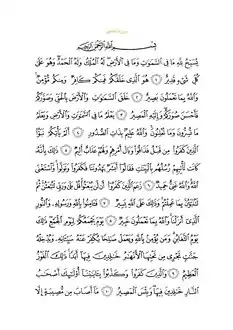 بِسْمِ ٱللَّهِ ٱلرَّحْمَٰنِ ٱلرَّحِيمِ
يُسَبِّحُ لِلَّهِ مَا فِي ٱلسَّمَٰوَٰتِ وَمَا فِي ٱلْأَرْضِ لَهُ ٱلْمُلْكُ وَلَهُ ٱلْحَمْدُ وَهُوَ عَلَىٰ
كُلِّ شَيْءٍ قَدِيرٌ ١ هُوَ ٱلَّذِي خَلَقَكُمْ فَمِنكُمْ كَافِرٌ وَمِنكُم مُّؤْمِنٌ
وَٱللَّهُ بِمَا تَعْمَلُونَ بَصِيرٌ ٢ خَلَقَ ٱلسَّمَٰوَٰتِ وَٱلْأَرْضَ بِٱلْحَقِّ وَصَوَّرَكُمْ
فَأَحْسَنَ صُوَرَكُمْ وَإِلَيْهِ ٱلْمَصِيرُ ٣ يَعْلَمُ مَا فِي ٱلسَّمَٰوَٰتِ وَٱلْأَرْضِ وَيَعْلَمُ
مَا تُسِرُّونَ وَمَا تُعْلِنُونَ وَٱللَّهُ عَلِيمٌۢ بِذَاتِ ٱلصُّدُورِ ٤ أَلَمْ يَأْتِكُمْ نَبَؤُا۟
ٱلَّذِينَ كَفَرُوا۟ مِن قَبْلُ فَذَاقُوا۟ وَبَالَ أَمْرِهِمْ وَلَهُمْ عَذَابٌ أَلِيمٌ ٥ ذَٰلِكَ بِأَنَّهُۥ
كَانَت تَّأْتِيهِمْ رُسُلُهُم بِٱلْبَيِّنَٰتِ فَقَالُوٓا۟ أَبَشَرٌ يَهْدُونَنَا فَكَفَرُوا۟ وَتَوَلَّوا۟ وَّٱسْتَغْنَى
ٱللَّهُ وَٱللَّهُ غَنِيٌّ حَمِيدٌ ٦ زَعَمَ ٱلَّذِينَ كَفَرُوٓا۟ أَن لَّن يُبْعَثُوا۟ قُلْ بَلَىٰ وَرَبِّي لَتُبْعَثُنَّ
ثُمَّ لَتُنَبَّؤُنَّ بِمَا عَمِلْتُمْ وَذَٰلِكَ عَلَى ٱللَّهِ يَسِيرٌ ٧ فَـَٔامِنُوا۟ بِٱللَّهِ وَرَسُولِهِۦ وَٱلنُّورِ
ٱلَّذِيٓ أَنزَلْنَا وَٱللَّهُ بِمَا تَعْمَلُونَ خَبِيرٌ ٨ يَوْمَ يَجْمَعُكُمْ لِيَوْمِ ٱلْجَمْعِ ذَٰلِكَ
يَوْمُ ٱلتَّغَابُنِ وَمَن يُؤْمِنۢ بِٱللَّهِ وَيَعْمَلْ صَٰلِحًا يُكَفِّرْ عَنْهُ سَيِّـَٔاتِهِۦ وَيُدْخِلْهُ
جَنَّٰتٍ تَجْرِي مِن تَحْتِهَا ٱلْأَنْهَٰرُ خَٰلِدِينَ فِيهَآ أَبَدًا ذَٰلِكَ ٱلْفَوْزُ
ٱلْعَظِيمُ ٩ وَٱلَّذِينَ كَفَرُوا۟ وَكَذَّبُوا۟ بِـَٔايَٰتِنَآ أُو۟لَٰٓئِكَ أَصْحَٰبُ
ٱلنَّارِ خَٰلِدِينَ فِيهَا وَبِئْسَ ٱلْمَصِيرُ ١٠ مَآ أَصَابَ مِن مُّصِيبَةٍ إِلَّا